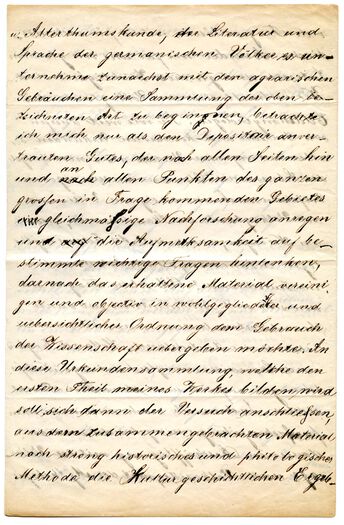 u. Alterthumskunde, der Literatur und
Sprache der germanischen Völker, es un-
ternehme zunaechst mit den agrarischen
Gebräuchen eine Sammlung der oben be-
zeichneten Art zu beginnen, betrachte
ich mich nur als den Depositair anver-
trauten Gutes, der nach allen Seiten hin
und an allen Punkten des ganzen
grossen in Frage kommenden Gebietes
gleichmässige Nachforschung anregen
und die Aufmerksamkeit auf be-
stimmte wichtige Fragen hinlenken,
darnach das erhaltene Material verein-
gen und objectiv in wohlgegliederter und
uebersichtlicher Ordnung dem Gebrauch
der Wissenschaft uebergeben möchte. An
diese Urkundensammlung, welche den
ersten Theil meines Werkes bilden wird
soll sich dann der Versuch anschliessen,
aus dem zusammengebrachten Material
nach streng historischer und philologischer
Methode die Kulturgeschichtlichen Ergeb-